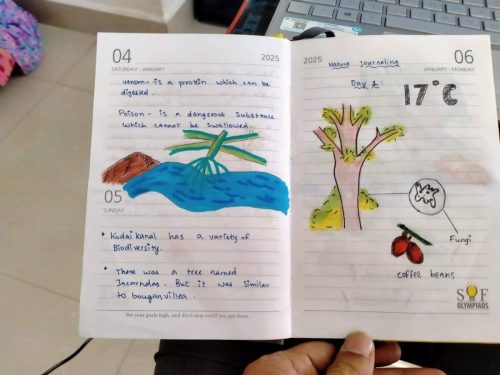 04
SATURDAY - JANUARY
2025
venom - is a protein which can be
digested.
Poison - is a dangerous substance
which cannot be swallowed.
05
SUNDAY
• Kodaikanal has a variety of
Biodiversity.
• There was a tree named
Jacarndas. But it was similar
to bougenvillea.
Set your goals high, and don't stop until you get there.
2025
06
JANUARY - MONDAY
Nature Journaling
Day 2:
17°C
Fungi
coffee beans
SOF
OLYMPIADS